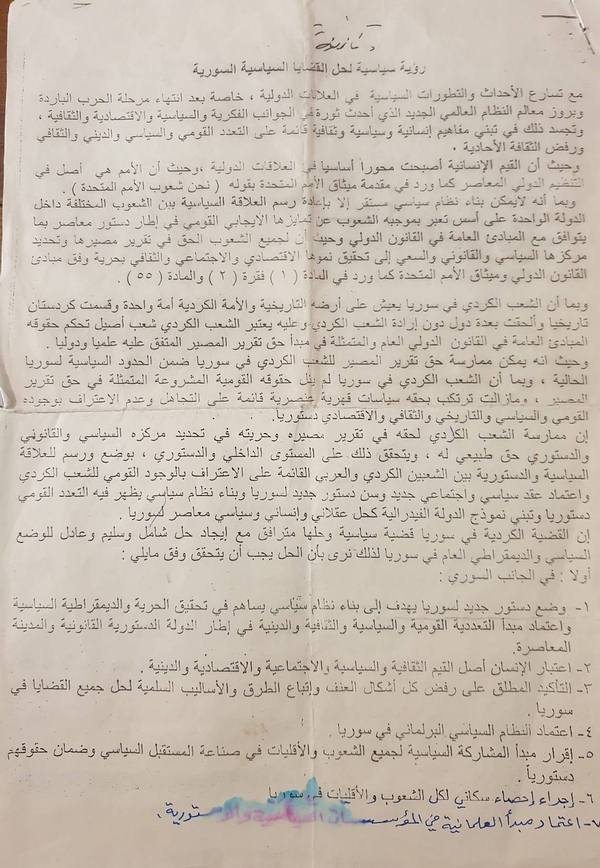 رؤية سياسية لحل القضايا السياسية السورية
مع تسارع الأحداث والتطورات السياسية في العلاقات الدولية ، خاصة بعد انتهاء مرحلة الحرب الباردة
وبروز معالم النظام العالمي الجديد الذي أحدث ثورة في الجوانب الفكرية والسياسية والاقتصادية والثقافية ،
وتجسد ذلك في تبني مفاهيم إنسانية وسياسية وثقافية قائمة على التعدد القومي والسياسي والديني والثقافي
ورفض الثقافة الأحادية .
وحيث أن القيم الإنسانية أصبحت محورا أساسيا في العلاقات الدولية ،وحيث أن الأمم هي أصل في
التنظيم الدولي المعاصر كما ورد في مقدمة ميثاق الأمم المتحدة بقوله ( نحن شعوب الأمم المتحدة ) .
وبما أنه لايمكن بناء نظام سياسي مستقر إلا بإعادة رسم العلاقة السياسية بين الشعوب المختلفة داخل
الدولة الواحدة على أسس تعبر بموجبه الشعوب عن تمايزها الايجابي القومي في إطار دستور معاصر بما
يتوافق مع المبادئ العامة في القانون الدولي وحيث أن لجميع الشعوب الحق في تقرير مصيرها وتحديد
مركزها السياسي والقانوني والسعي إلى تحقيق نموها الاقتصادي والاجتماعي والثقافي بحرية وفق مبادئ
القانون الدولي وميثاق الأمم المتحدة كما ورد في المادة ( ١ ) فقرة ( ٢ ) والمادة ( ٥٥ ) .
وبما أن الشعب الكردي في سوريا يعيش على أرضه التاريخية والأمة الكردية أمة واحدة وقسمت كردستان
تاريخيا وألحقت بعدة دول دون إرادة الشعب الكردي وعليه يعتبر الشعب الكردي شعب أصيل تحكم حقوقه
المبادئ العامة في القانون الدولي العام والمتمثلة في مبدأ حق تقرير المصير المتفق عليه علميا ودوليا .
وحيث انه يمكن ممارسة حق تقرير المصير للشعب الكردي في سوريا ضمن الحدود السياسية لسوريا
الحالية ، وبما أن الشعب الكردي في سوريا لم ينل حقوقه القومية المشروعة المتمثلة في حق تقرير
المصير ، ومازالت ترتكب بحقه سياسات قهرية عنصرية قائمة على التجاهل وعدم الاعتراف بوجوده
القومي والسياسي والتاريخي والثقافي والاقتصادي دستوريا.
إن ممارسة الشعب الكردي لحقه في تقرير مصيره وحريته في تحديد مركزه السياسي والقانوني
والدستوري حق طبيعي له ، ويتحقق ذلك على المستوى الداخلي والدستوري ، بوضع ورسم للعلاقة
السياسية والدستورية بين الشعبين الكردي والعربي القائمة على الاعتراف بالوجود القومي للشعب الكردي
واعتماد عقد سياسي واجتماعي جديد وسن دستور جديد لسوريا وبناء نظام سياسي يظهر فيه التعدد القومي
دستوريا وتبني نموذج الدولة الفيدرالية كحل عقلاني وإنساني وسياسي معاصر لسوريا .
إن القضية الكردية في سوريا قضية سياسية وحلها مترافق مع إيجاد حل شامل وسليم وعادل للوضع
السياسي والديمقراطي العام في سوريا لذلك نرى بأن الحل يجب أن يتحقق وفق مايلي :
أولا : في الجانب السوري :
١- وضع دستور جديد لسوريا يهدف إلى بناء نظام سياسي يساهم في تحقيق الحرية والديمقراطية السياسية
واعتماد مبدأ التعددية القومية والسياسية والثقافية والدينية في إطار الدولة الدستورية القانونية والمدينة
المعاصرة.
٢- اعتبار الإنسان أصل القيم الثقافية والسياسية والاجتماعية والاقتصادية والدينية .
٣- التأكيد المطلق على رفض كل أشكال العنف وإتباع الطرق والأساليب السلمية لحل جميع القضايا في
سوريا .
٤- اعتماد النظام السياسي البرلماني في سوريا .
٥- إقرار مبدأ المشاركة السياسية لجميع الشعوب والأقليات في صناعة المستقبل السياسي وضمان حقوقهم
دستورياً .
٦- إجراء إحصاء سكاني لكل الشعوب والأقليات في سوريا
٧- اعتماد مبدأ العلمانية في المؤسسات السياسية والدستورية .